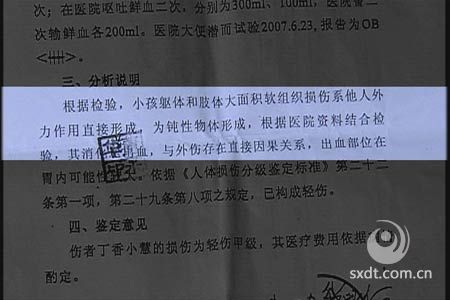 次；在医院呕吐鲜血二次，分别为300ml、100ml，医院
次输鲜血各200ml。医院大便潜血试验2007.6.23,报告为OB
三、分析说明
根据检验，小孩躯体和肢体大面积软组织损伤系他人外
力作用直接形成，为钝性物体形成，根据医院资料结合检
验，其消 出血，与外伤存在直接因果关系，出血部位在
胃内可能性 。依据《人体损伤分级鉴定标准》第二十二
条第一项，第二十九条第八项之规定，已构成轻伤。
四、鉴定意见
伤者丁香小慧的损伤为轻伤甲级，其医疗费用依据
酌定。
sxdt.com.cn